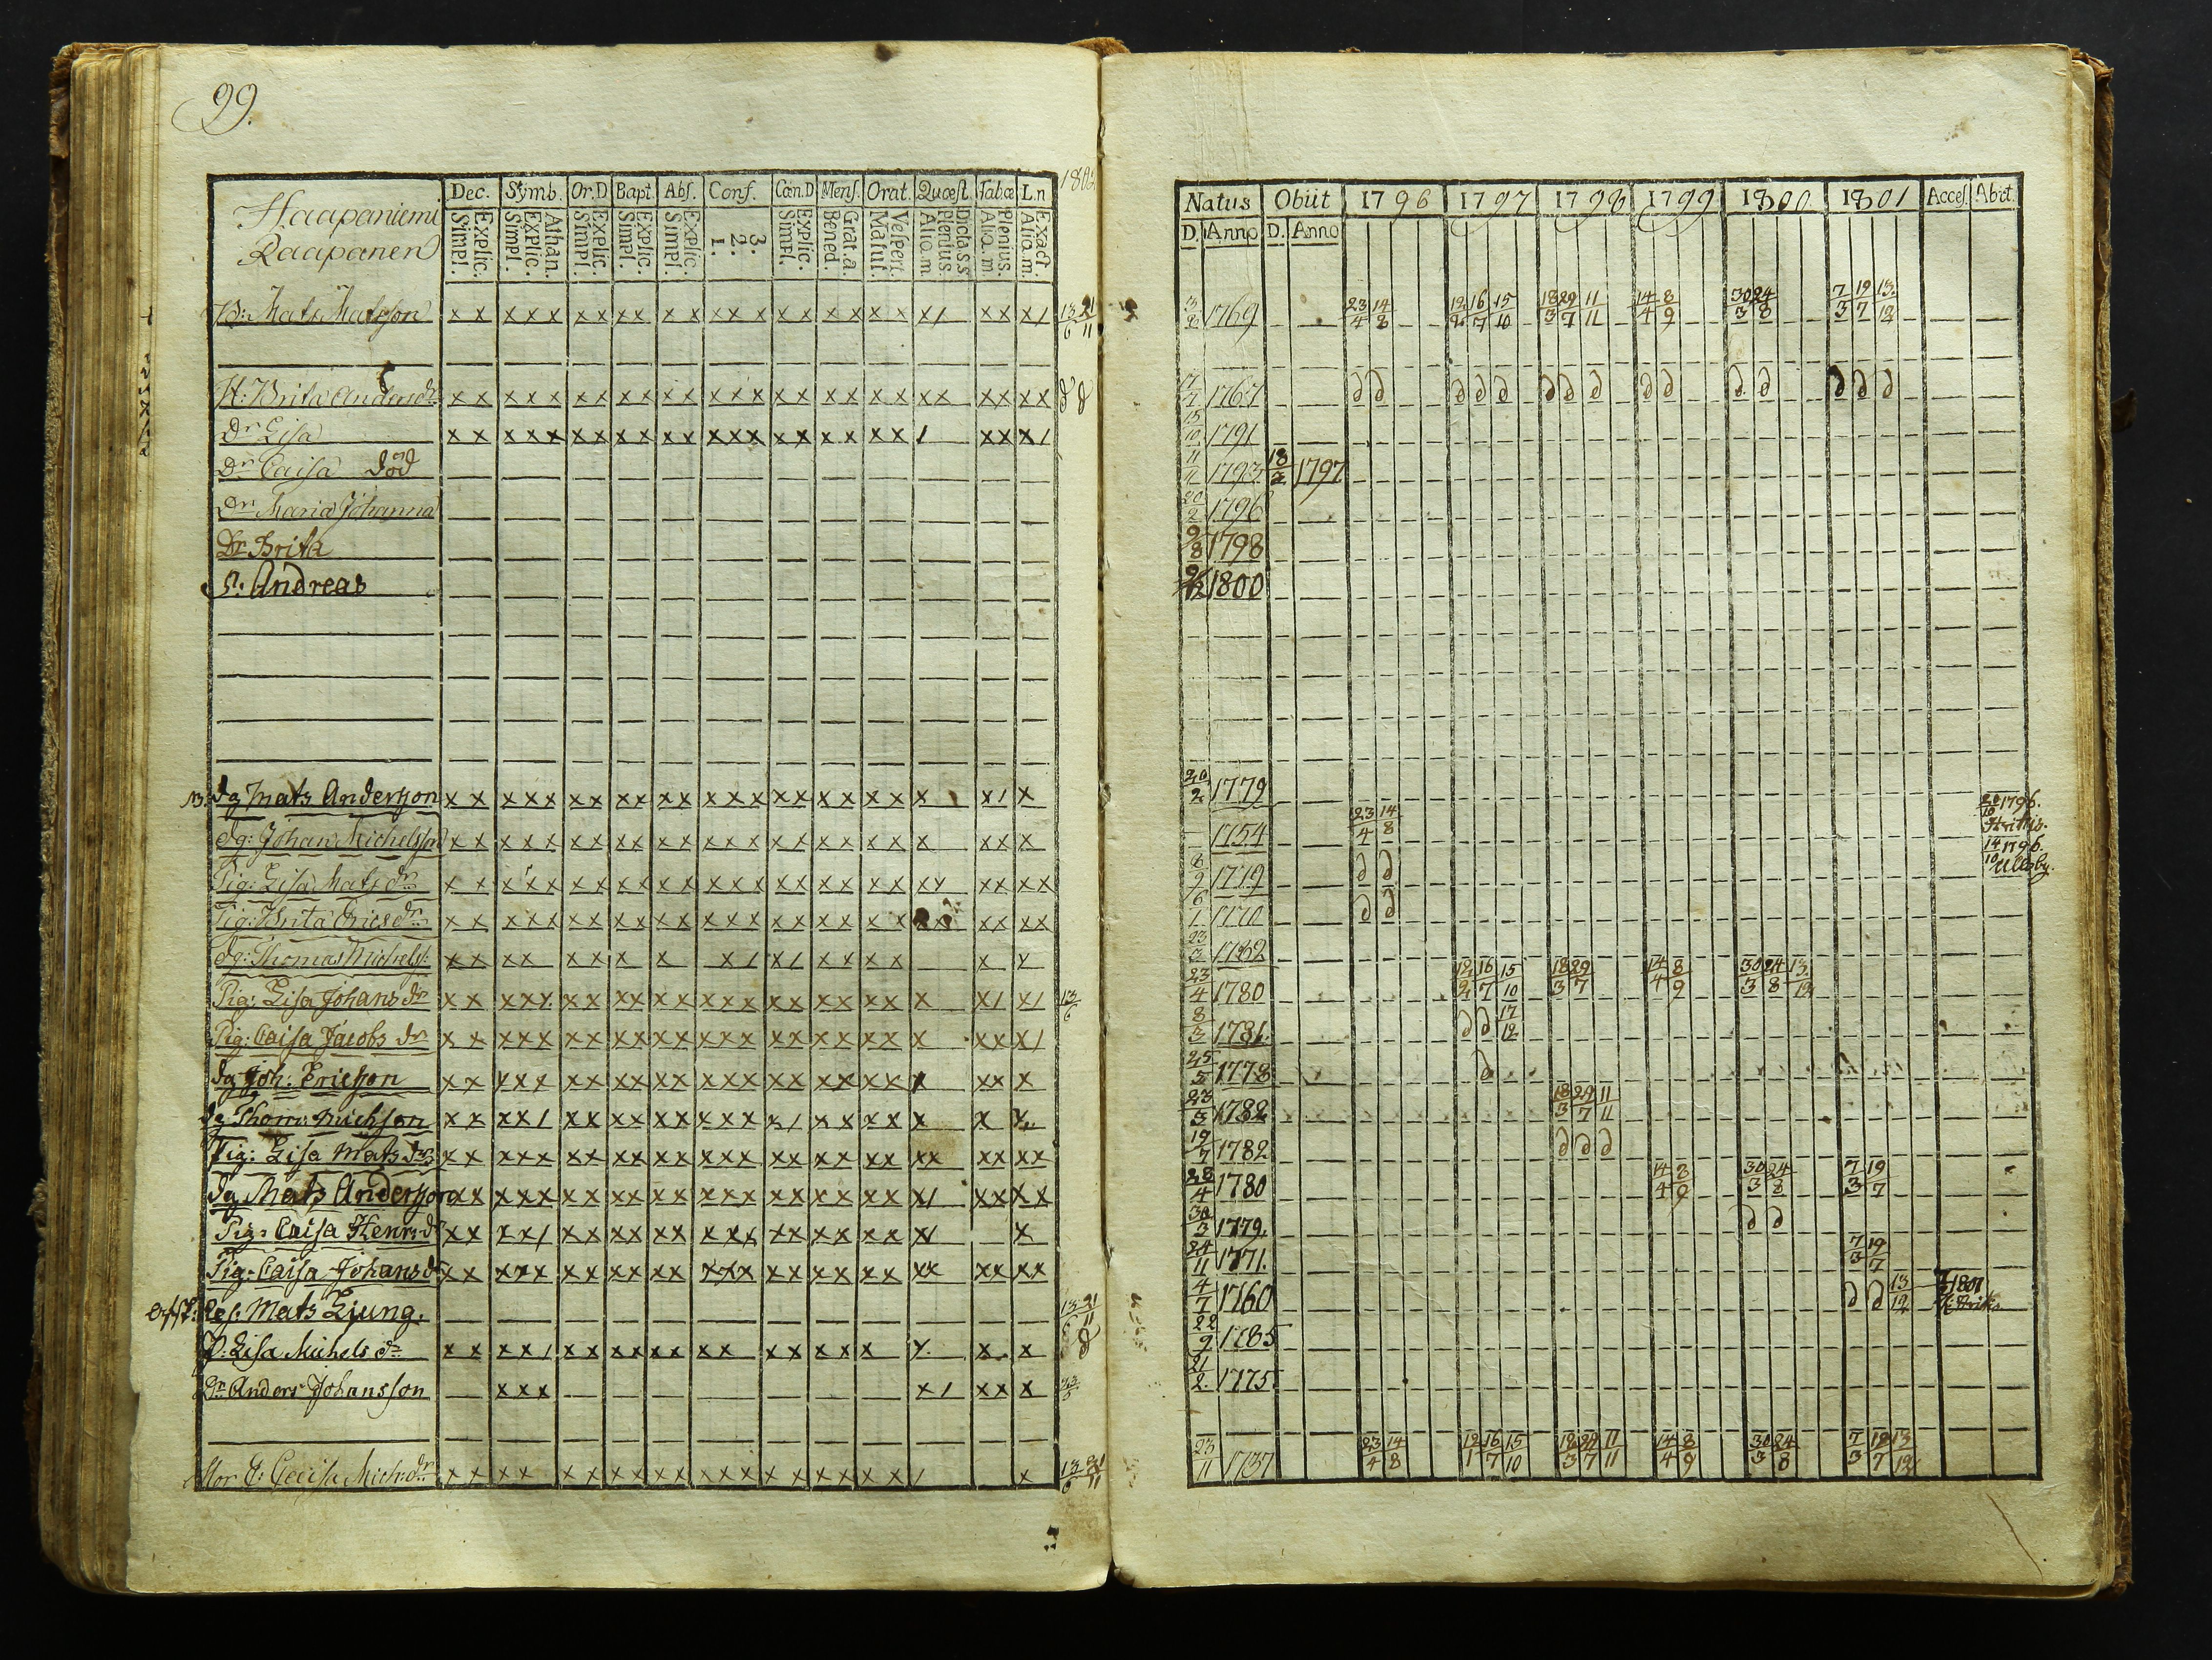 99.
Haapaniemi
Raapanen
Dec. Symb. Or.D Bapt. Abs. Conf. Cœn.D Mens. Orat. Quæst. Tabæ L.n 1802
Explic. Simpl. Athan. Explic. Simpl. Explic. Simpl. Explic. Simpl. Explic. Simpl. 3. 2. 1. Explic. Simpl. Grat.a. Bened. Vespert. Matut. Dicta.s.s Plenius. Aliq.m. Plenius. Aliq.m. Exact. Aliq.m.
Natus Obiit 1796 1797 1798 1799 1800 1801 Acces. Abiit.
D. Anno D. Anno
B: Mats Matsson x x x x x x x x x x x x x x x x x x x x x x / x x x / 13/6 21/11 1769 23/4 14/8 12/2 16/7 15/10 18/3 29/7 11/11 14/4 8/9 30/3 24/8 7/3 19/7 13/12
H: Brita Andersdr x x x x x x x x x x x x x x x x x x x x x x x x x x x d d 1767 d d d d d d d d d d d d d d d
Dr Lisa x x x x x x x x x x x x x x x x x x x x x / x x x / 15/10 1791
Dr Caisa död 11/4 1793 18/2 1797
Dr Maria Johanna 20/2 1796
Dr Brita 9/8 1798
S. Andreas 1800
Dg Mats Andersson x x x x x x x x x x x x x x x x x x x x x x / x 20/2 1779
Dg: Johan Michelsson x x x x x x x x x x x x x x x x x x x x x x x x 1754 23/4 14/8 1796.
Pig: Lisa Matsdr x x x x x x x x x x x x x x x x x x x x x x x x x x 8/9 1779 d d 14/10 1796. Ulloby.
Pig: Brita Ericsdr x x x x x x x x x x x x x x x x x x x x x x x x x x 6/1 1770 d d
Dg: Thomas Michelss: x x x x x x x x x / x / x x x x x x 23/3 1782
Pig: Lisa Johansdr x x x x x x x x x x x x x x x x x x x x x x / x / 13/6 23/4 1780 12/2 16/7 15/10 18/3 29/7 14/4 8/9 30/3 24/8 13/12
Pig: Caisa Jacobs dr x x x x x x x x x x x x x x x x x x x x x x x x / 8/3 1781. d d 17/12
dg Joh: Ericsson x x x x x x x x x x x x x x x x x x x x x x x x 25/5 1778 d
dg Thom: Michson x x x x / x x x x x x x x x x / x x x x x x x 23/3 1782 18/3 29/7 11/11
Pig: Lisa Matsdr x x x x x x x x x x x x x x x x x x x x x x x x x x 19/7 1782 d d d
dg Mats Andersson x x x x x x x x x x x x x x x x x x x x x / x x x x 28/4 1780 14/4 8/9 30/3 24/8 7/3 19/7
Pig: Caisa Henr:dr x x x x / x x x x x x x x x x x x x x x x / x 30/3 1779. d d
Pig: Caisa Johansdr x x x x x x x x x x x x x x x x x x x x x x x x x x 24/11 1771. 7/3 19/7
Mats Ljung. 13/6 21/11 4/7 1760 d d 13/12 1801
P: Lisa Michels dr x x x x / x x x x x x x x x x x x x x x x x d 22/9 1785
Dr Anders Johansson x x x x / x x x 21/2. 1775
x x x x x x x x x x x x x x x x x x x x / x 13/6 21/11 23/11 1737 23/4 14/8 12/1 16/7 15/10 18/3 29/7 11/11 14/4 8/9 30/3 24/8 7/3 19/7 13/12